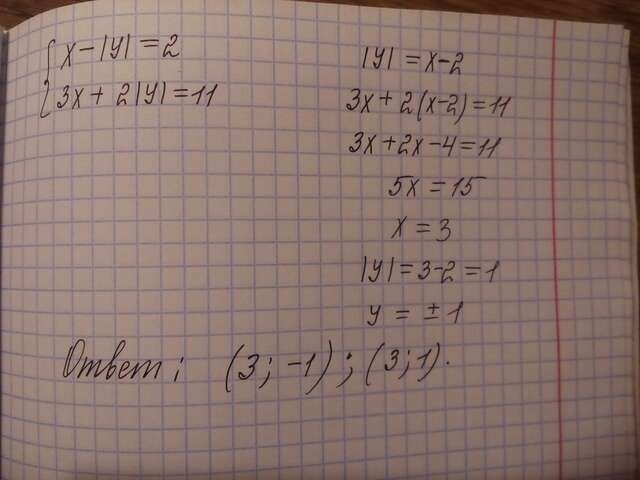 x - |y| = 2
3x + 2|y| = 11
|y| = x - 2
3x + 2(x-2) = 11
3x + 2x - 4 = 11
5x = 15
x = 3
|y| = 3-2 = 1
y = ± 1
Ответ: (3; -1); (3; 1).